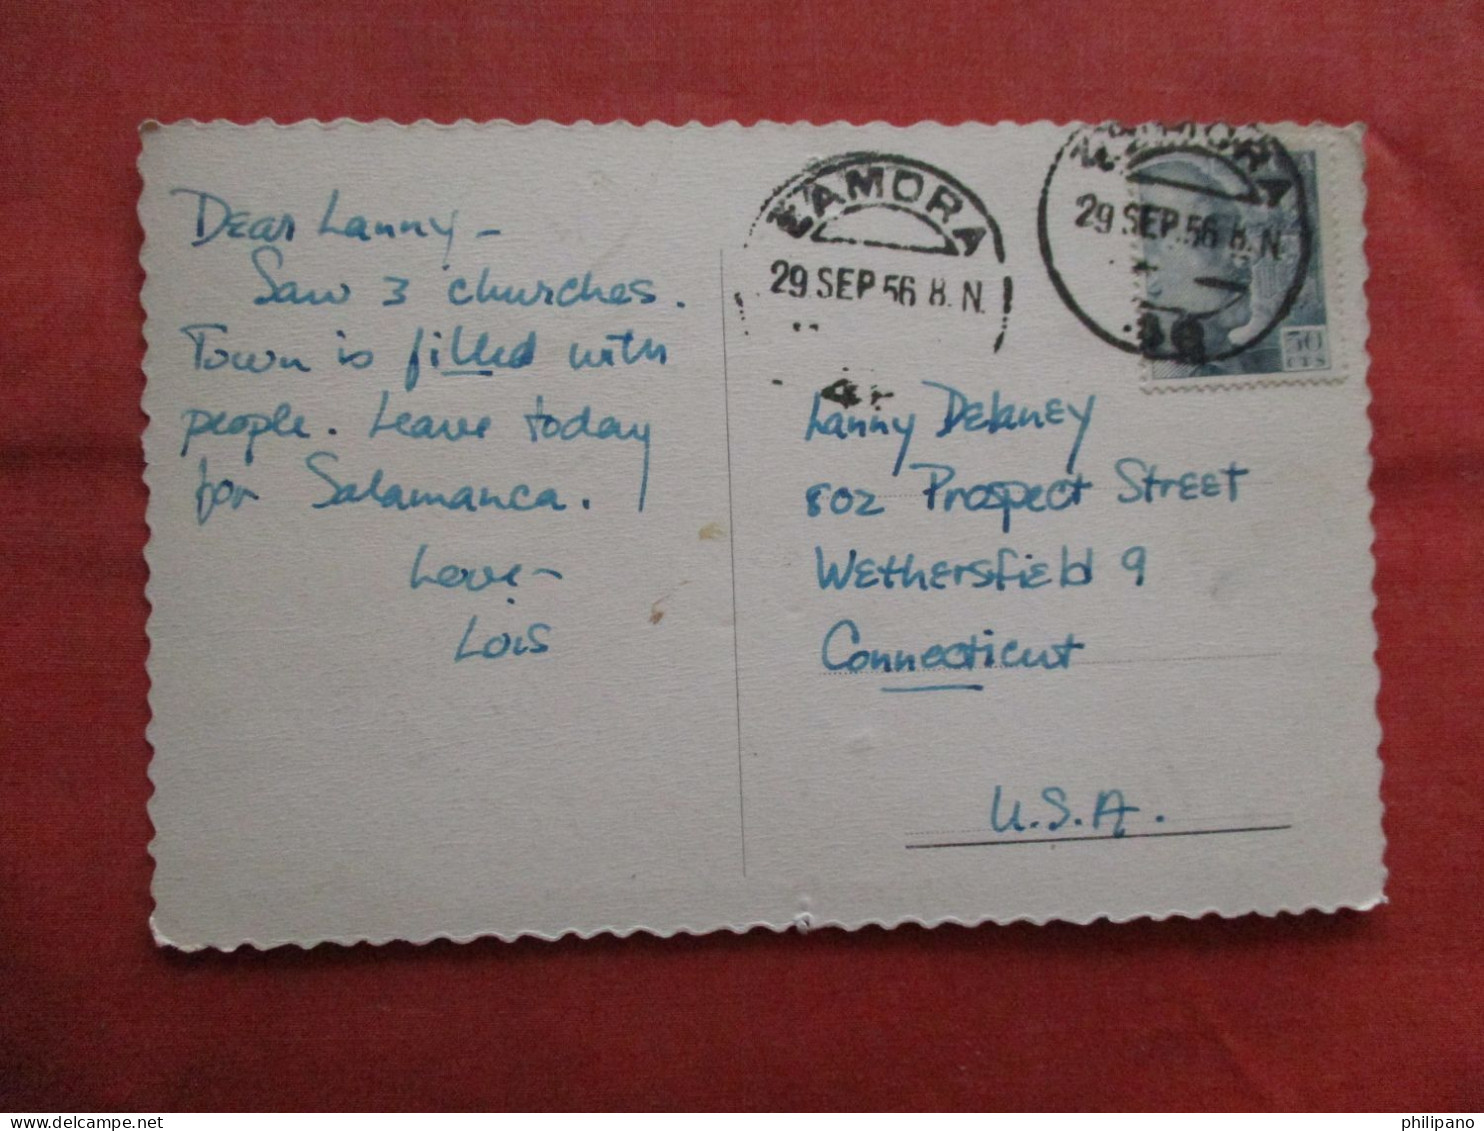 Dear Lanny -
Saw 3 churches.
Town is filled with
people. Leave today
for Salamanca.
Love -
Lois
ZAMORA
29 SEP. 56 8. N.
ZAMORA
29 SEP. 56 8. N.
50
CTS
Lanny Delaney
802 Prospect Street
Wethersfield 9
Connecticut
U.S.A.
philipano